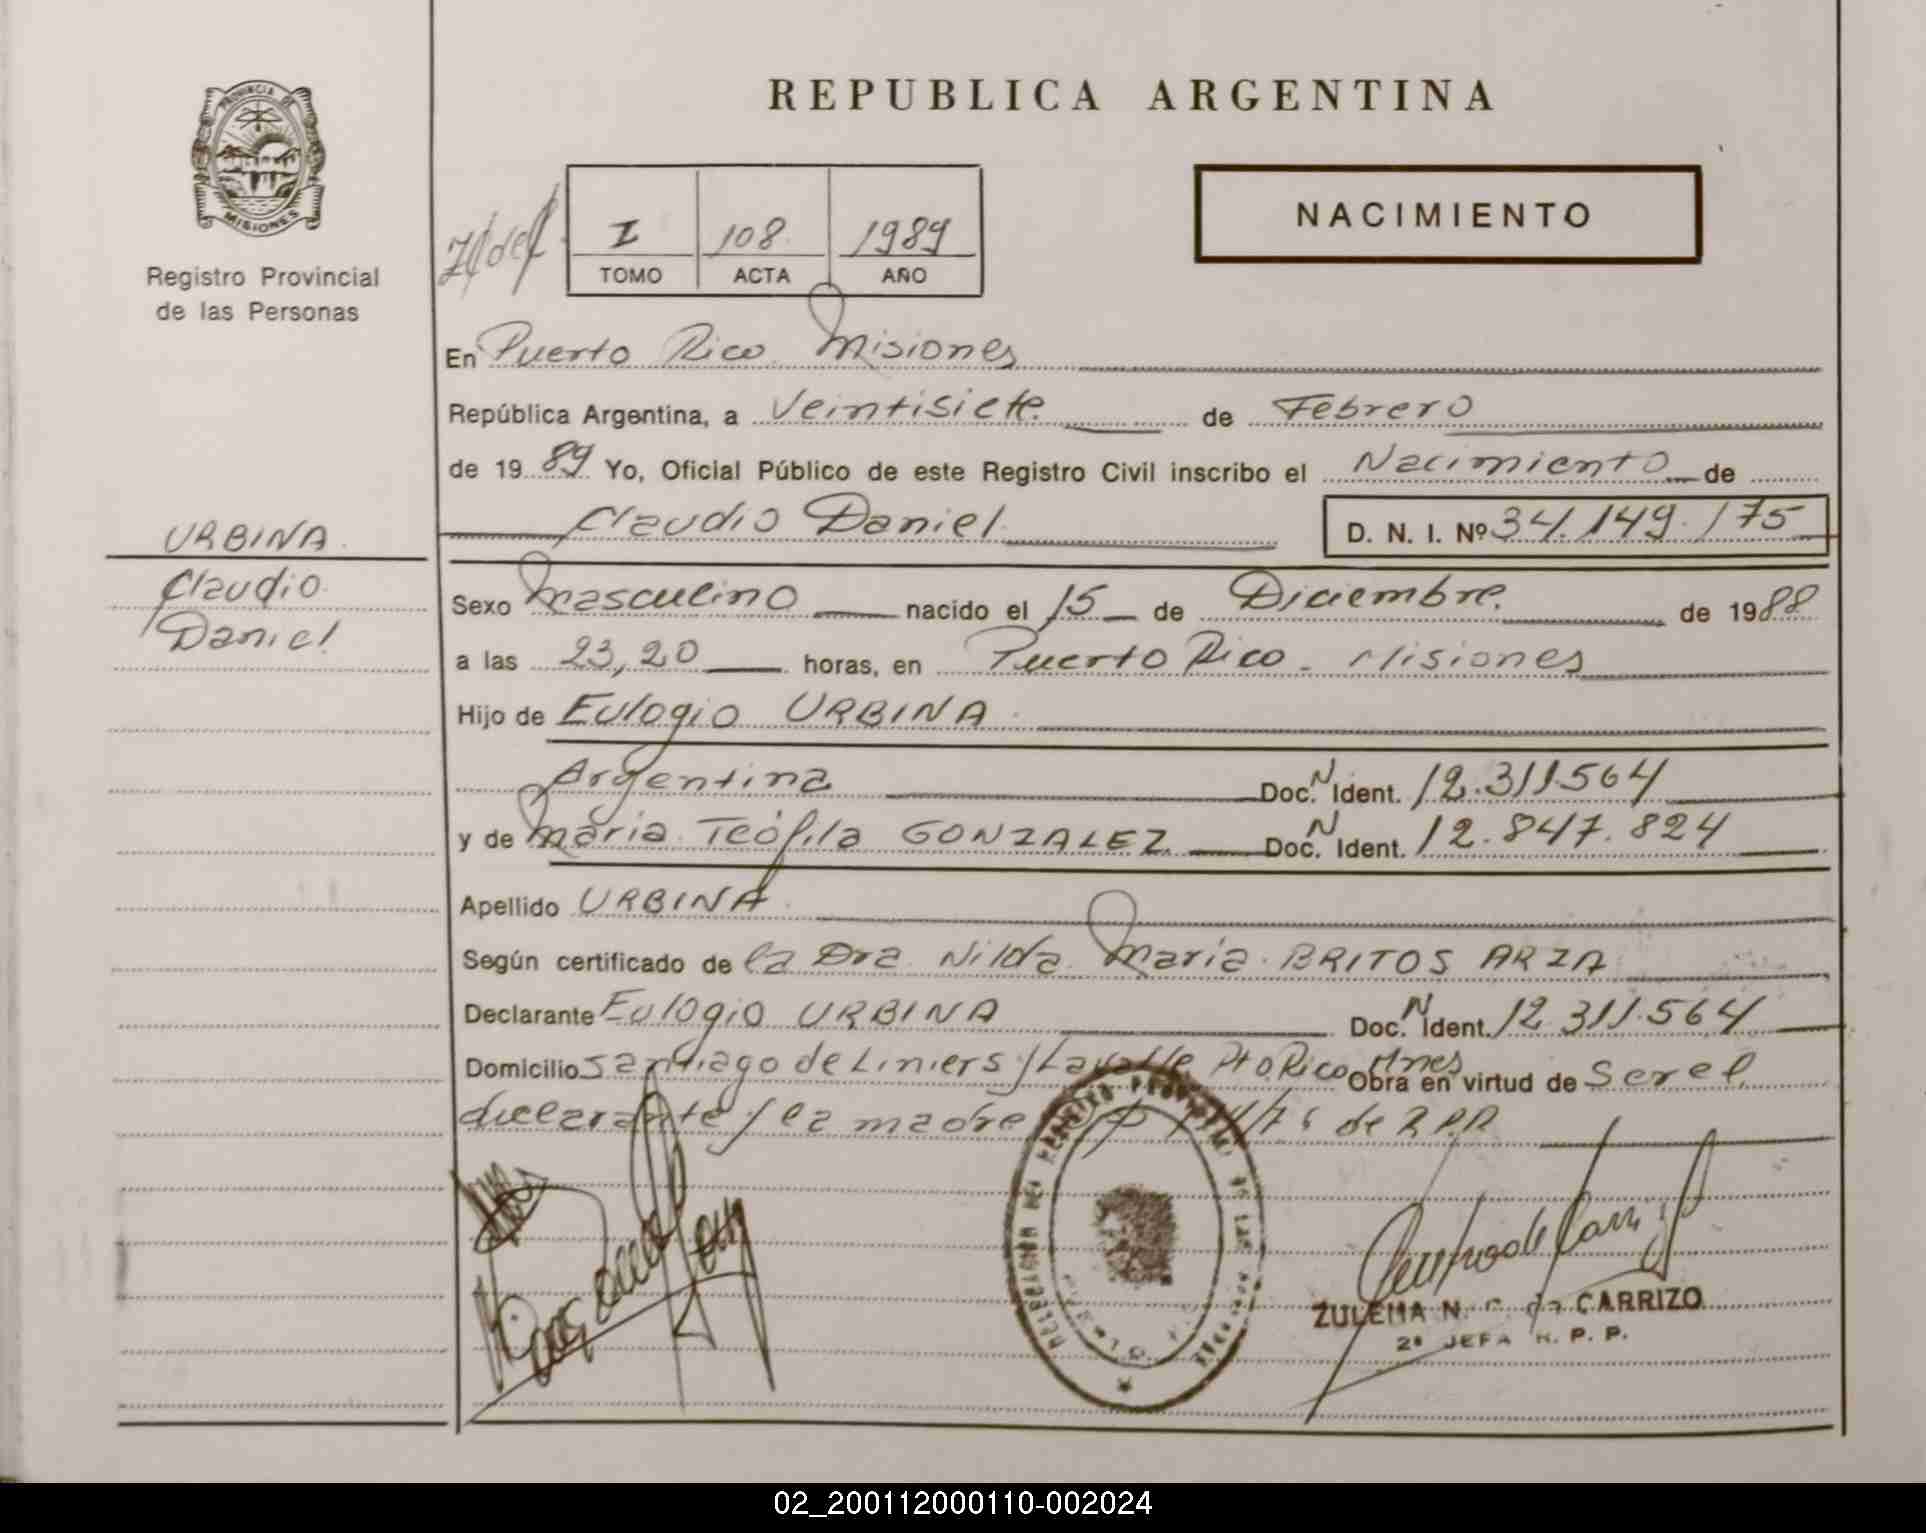 PROVINCIA DE
MISIONES
Registro Provincial
de las Personas
URBINA
Claudio
Daniel
REPUBLICA ARGENTINA
I 108 1989
TOMO ACTA AÑO
NACIMIENTO
En Puerto Rico Misiones
República Argentina, a Veintisiete de Febrero
de 1989 Yo, Oficial Público de este Registro Civil inscribo el Nacimiento de
Claudio Daniel D. N. I. Nº 34.149.175
Sexo Masculino nacido el 15 de Diciembre de 1988
a las 23,20 horas, en Puerto Rico - Misiones
Hijo de Eulogio URBINA
Argentina Doc. N Ident. 12.311.564
y de Maria Teófila GONZALEZ Doc. N Ident. 12.847.824
Apellido URBINA
Según certificado de la Dra. Nilda Maria BRITOS ARZA
Declarante Eulogio URBINA Doc. N Ident. 12.311.564
Domicilio Santiago de Liniers y Lavalle Pto Rico Mnes Obra en virtud de Ser el
declarante y la madre de R.P.P.
ZULEMA N. de CARRIZO
2ª JEFA R. P. P.
02_200112000110-002024